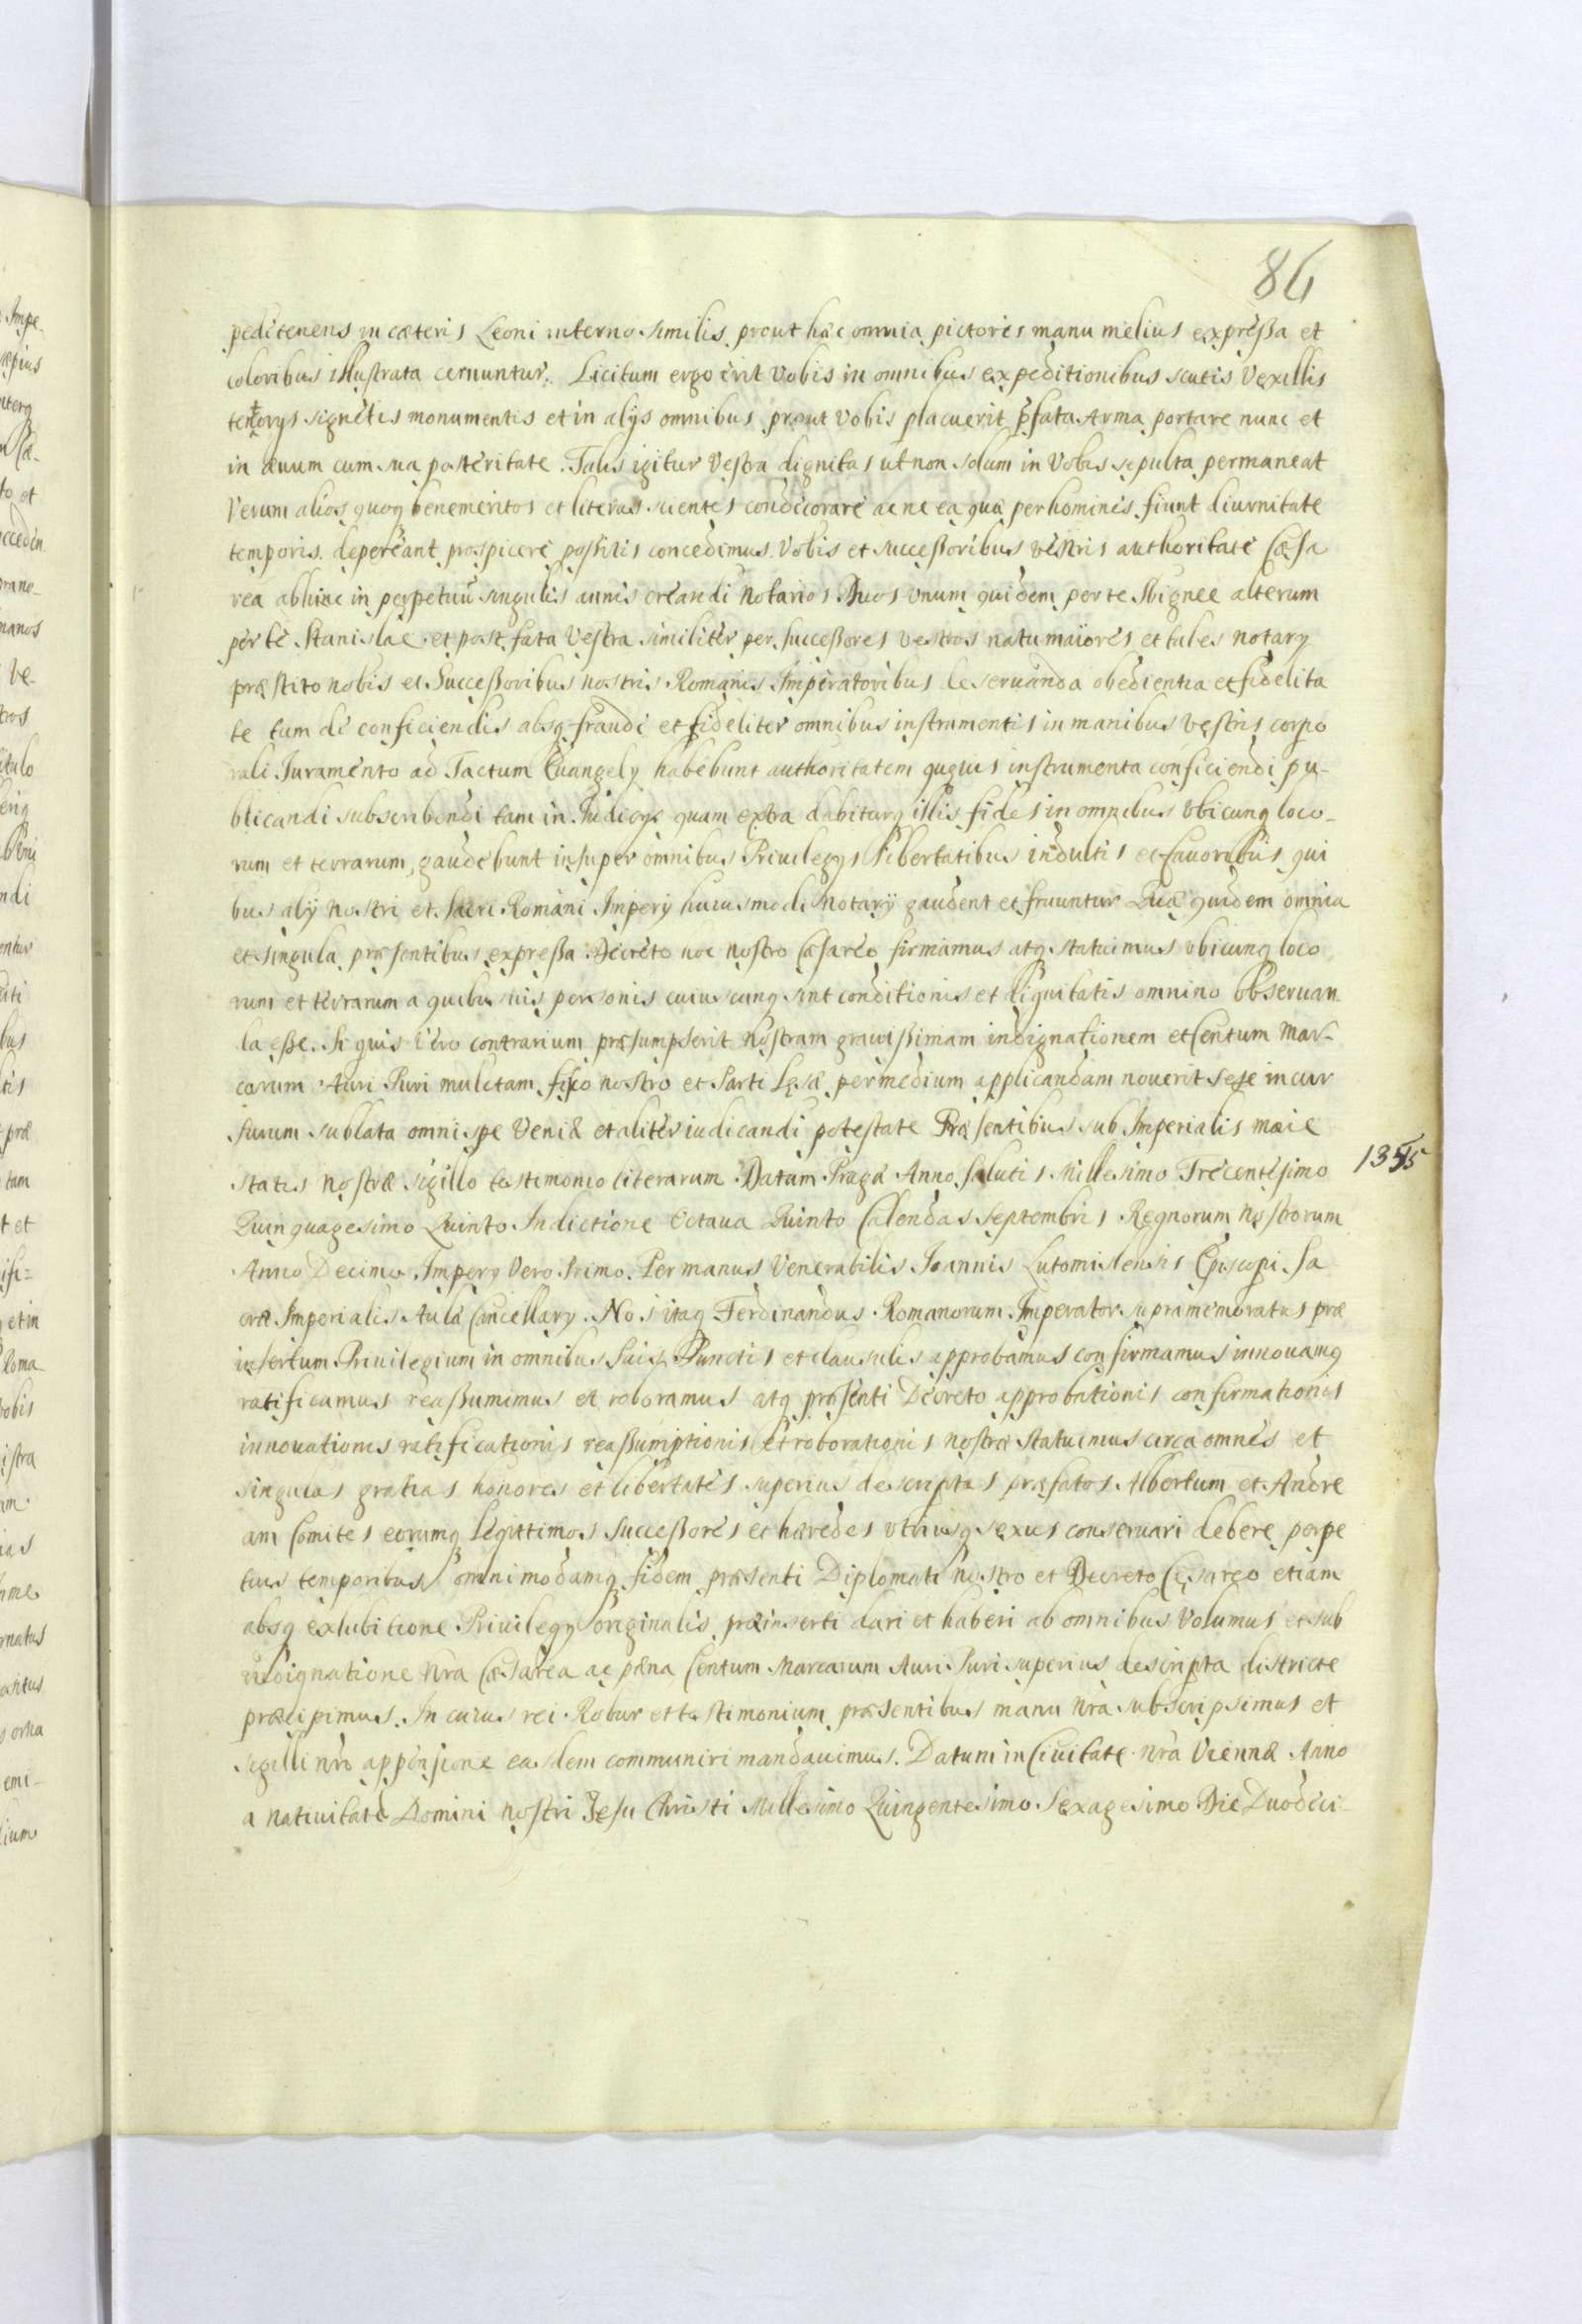 86
peditenens in cæteris Leoni interno similis prout hæc omnia pictoris manu melius expressa et
coloribus illustrata cernuntur. Licitum ergo erit Vobis in omnibus expeditionibus scutis Vexillis
tentorys signetis monumentis et in alijs omnibus prout vobis placuerit p̄fata Arma portare nunc et
in æuum cum sua posteritate. Talis igitur Vestra dignitas ut non solum in Vobis sepulta permaneat
Verum alios quoq benemeritos et literas scientes condecorare ac ne ea quæ per hominés fiunt diurnitate
temporis depereant prospicere possitis concedimus Vobis et successoribus vestris authoritate Cæsa
rea abhinc in perpetuũ singulis annis creandi Notarios Duos vnum quidem per te Sbignee alterum
per te Stanislae et post fata Vestra similiter per Successores vestros natu maiores et tales notary
præstito nobis et Successoribus nostris Romanis Imperatoribus de seruanda obedientia et fidelita
te tum de conficiendis absq fraude et fideliter omnibus instrumentis in manibus vestris corpo
rali Juramento ad Tactum Euangely habebunt authoritatem quæuis instrumenta conficiendi pu-
blicandi subscribendi tam in Judicys quam extra dabiturq illis fides in omnibus vbicunq loco-
rum et terrarum, gaudebunt insuper omnibus Priuilegys Libertatibus indultis et fauoribus qui
bus alij nostri et Sacri Romani Impery huiusmodi Notarij gaudent et fruuntur Quæ quidem omnia
et singula præsentibus expressa Decreto hoc nostro Cæsareo firmamus atq statuimus vbicunq loco
rum et terrarum a quibusuis personis cuiuscunq sint conditionis et dignitatis omnino obseruan
da esse. Si quis vero contrarium præsumpserit Nostram grauissimam indignationem et Centum Mar-
carum Auri Puri mulctam fisco nostro et Parti Læsæ per medium applicandam nouerit sese incur
surum sublata omni spe Veniæ et aliter iudicandi potestate Præsentibus sub Imperialis maie
statis nostræ sigillo testimonio literarum Datum Pragæ Anno Salutis Millesimo Trecentesimo 1355
Quinquagesimo Quinto Indictione Octaua Quinto Calendas Septembris Regnorum Nostrorum
Anno Decimo Impery Vero Primo. Per manus Venerabilis Joannis Lutomislensis Episcopi Sa
cræ Imperialis Aulæ Cancellary. Nos itaq Ferdinandus Romanorum Imperator supramemoratus præ
insertum Priuilegium in omnibus Suis Punctis et clausulis approbamus confirmamus innouamq
ratificamus reassumimus et roboramus atq præsenti Decreto approbationis confirmationis
innouationis ratificationis reassumptionis et roborationis nostræ Statuimus circa omnes et
singulas gratias honores et libertates superius descriptas præfatos Albertum et Andre
am Comites eorumq legittimos Successores et hæredes vtriusq sexus conseruari debere perpe
tuis temporibus omnimodamq fidem præsenti Diplomati nostro et Decreto Cæsareo etiam
absq exhibitione Priuilegy originalis præinserti dari et haberi ab omnibus Volumus et sub
indignatione nra Cæsarea ac pæna Centum Marcarum Auri Puri superius descripta districte
præcipimus. In cuius rei Robur et testimonium præsentibus manu nra subscripsimus et
sigilli nri appensione easdem communiri mandauimus. Datum in Ciuitate nra Viennæ Anno
a natiuitate Domini nostri Jesu Christi Millesimo Quingentesimo Sexagesimo Die Duodeci-